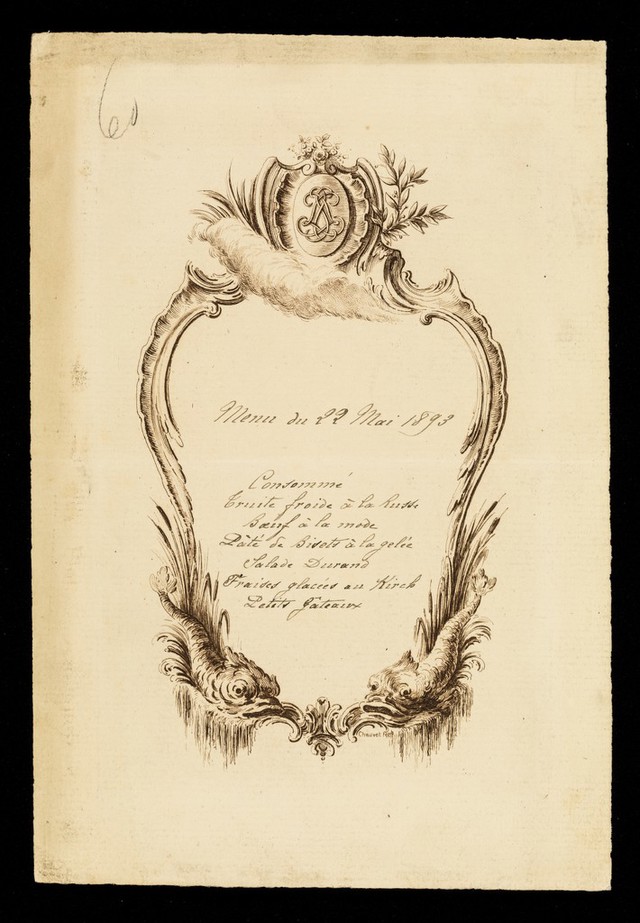 Menu du 22 Mai 1893
Consommé
Truite froide à la Russe
Bœuf à la mode
Pâté de Bisets à la gelée
Salade Durand
Fraises glacées au Kirch
Petits Gâteaux
Chauvet